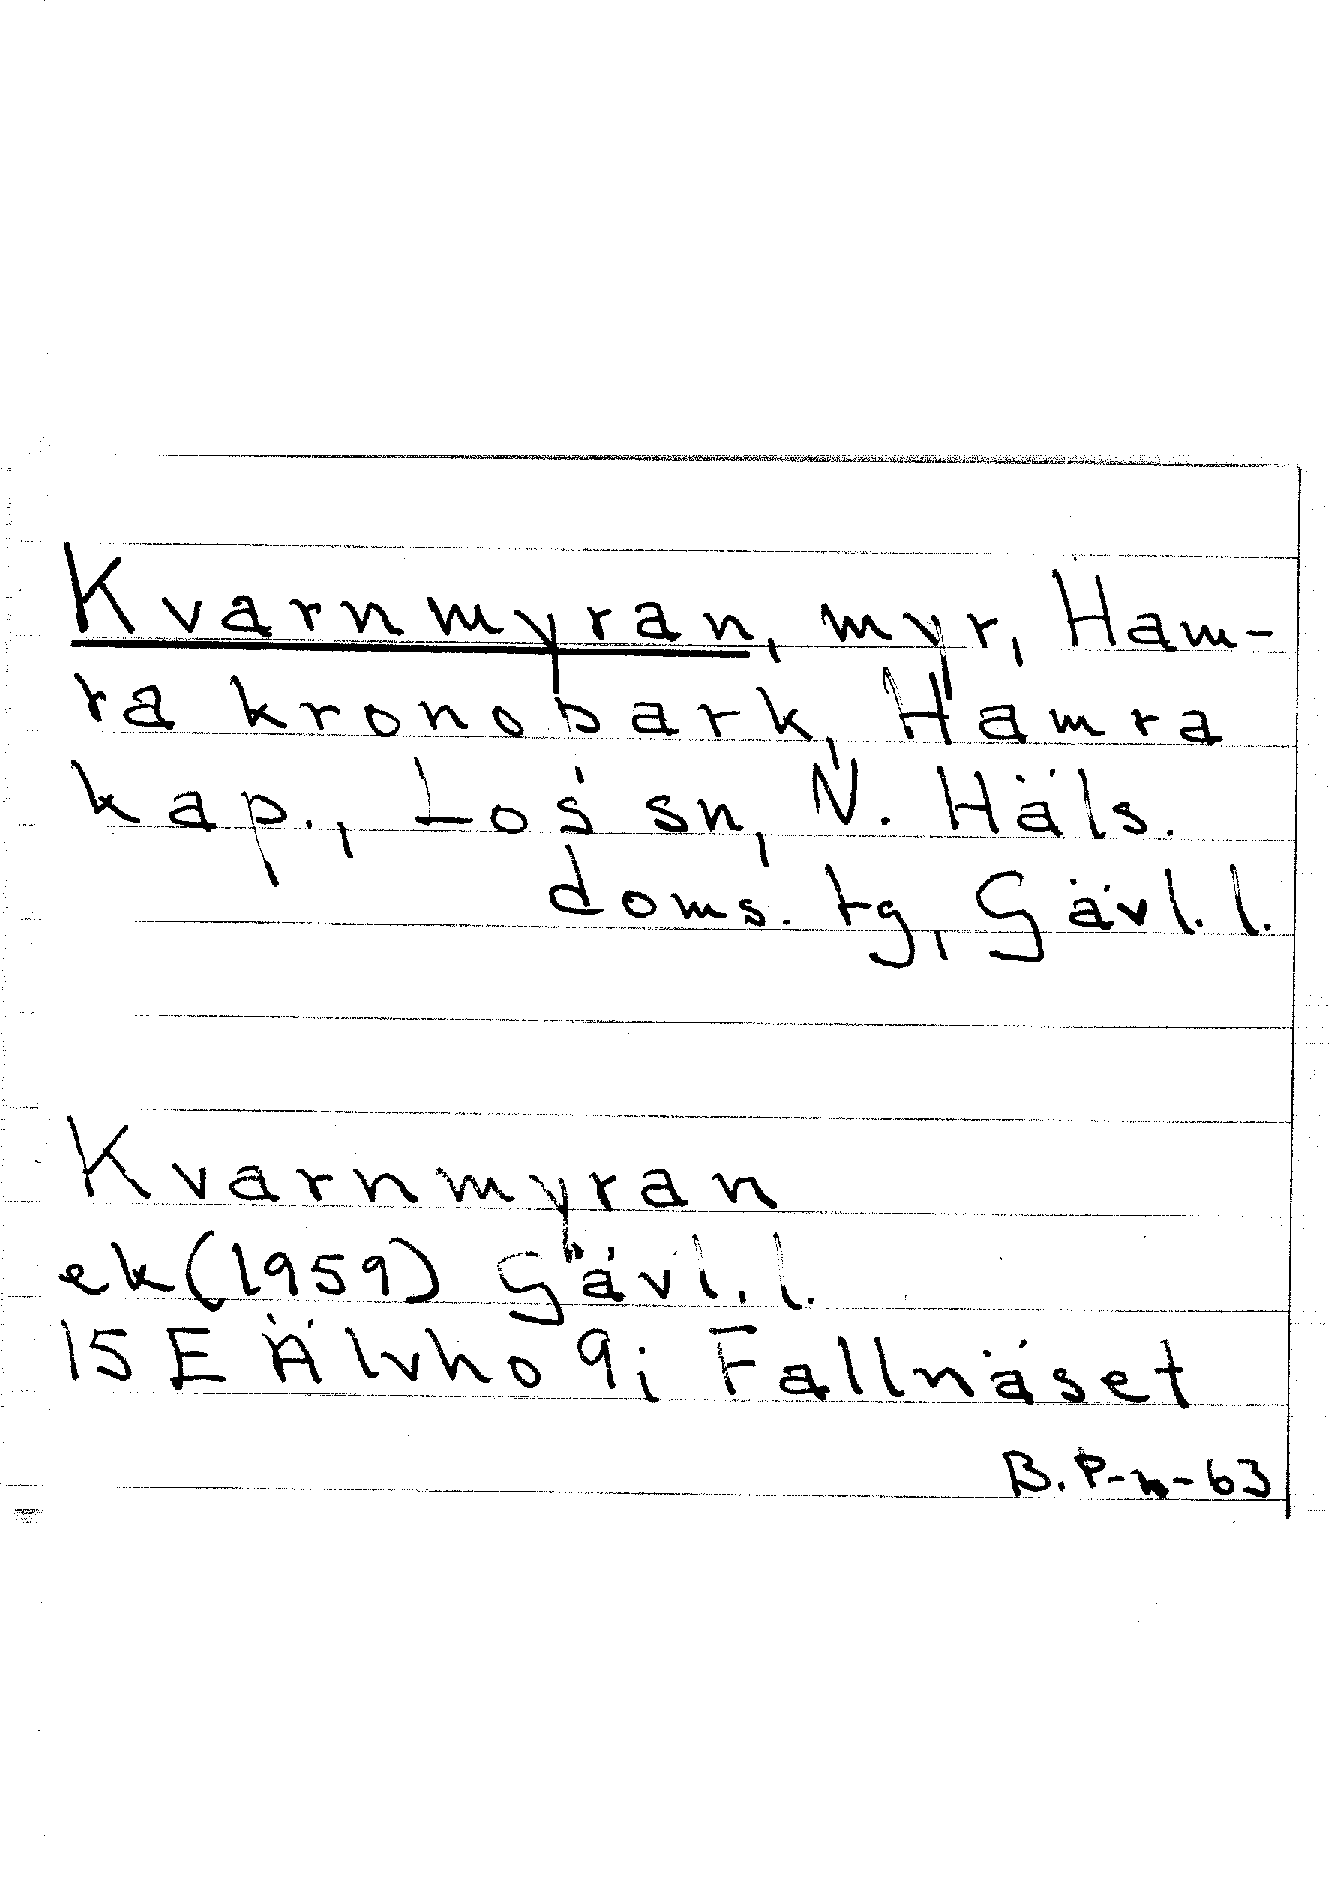 Kvarnmyran, myr, Ham-
ra kronopark, Hamra
kap., Los' sn, N. Häls.
doms. tg, Gävl. l.
Kvarnmyran
ek (1959) Gävl. l.
15 E Älvho 9i Fallnäset
B. P-n-63